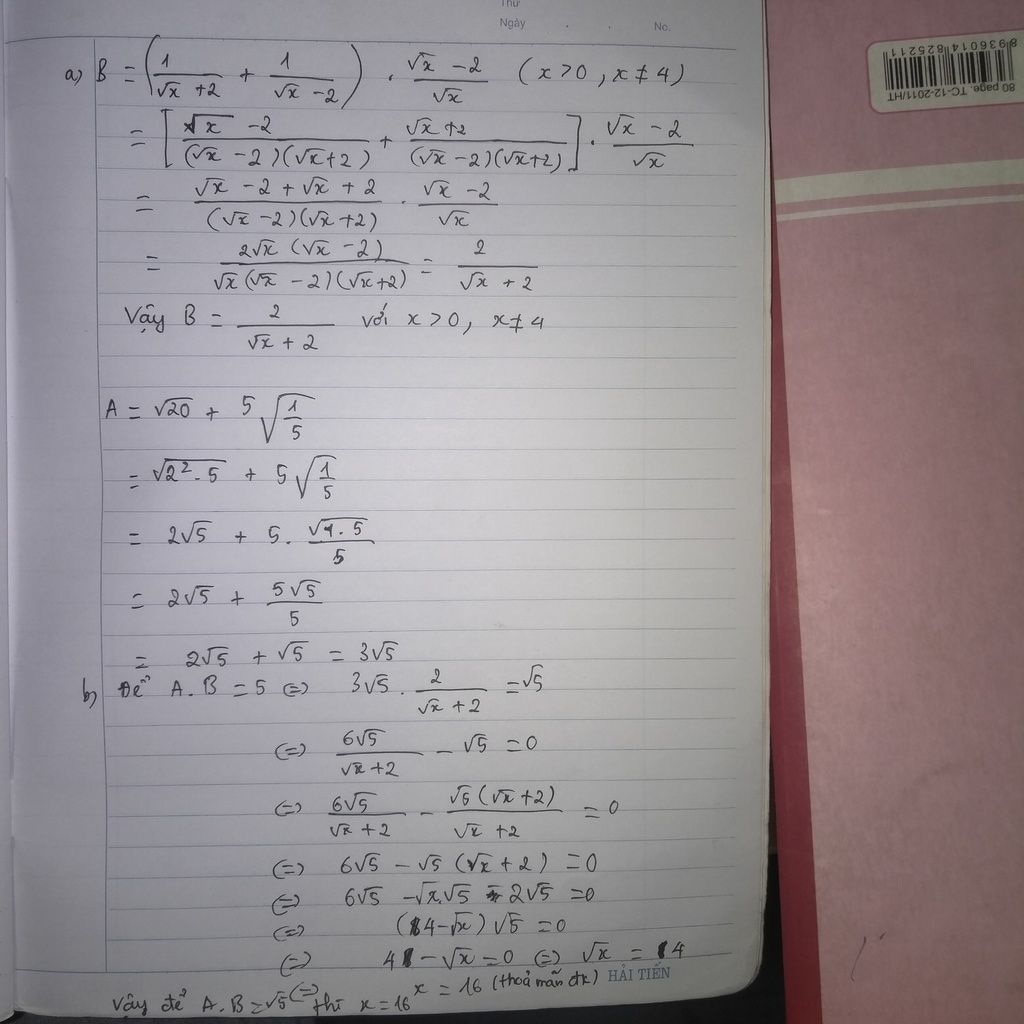 Thứ
Ngày . . No.
a) B = (1/(√x + 2) + 1/(√x - 2)) . (√x - 2)/√x (x > 0, x ≠ 4)
= [(√x - 2)/((√x - 2)(√x + 2)) + (√x + 2)/((√x - 2)(√x + 2))] . (√x - 2)/√x
= (√x - 2 + √x + 2)/((√x - 2)(√x + 2)) . (√x - 2)/√x
= 2√x (√x - 2)/(√x (√x - 2)(√x + 2)) = 2/(√x + 2)
Vậy B = 2/(√x + 2) với x > 0, x ≠ 4
A = √20 + 5√(1/5)
= √(2² . 5) + 5√(1/5)
= 2√5 + 5 . √(1 . 5)/5
= 2√5 + 5√5/5
= 2√5 + √5 = 3√5
b) Để A.B = 5 (=) 3√5 . 2/(√x + 2) = √5
(=) 6√5/(√x + 2) - √5 = 0
(=) 6√5/(√x + 2) - √5(√x + 2)/(√x + 2) = 0
(=) 6√5 - √5 (√x + 2) = 0
(=) 6√5 - √x.√5 - 2√5 = 0
(=) (4 - √x) √5 = 0
(=) 4 - √x = 0 (=) √x = 4
(=) x = 16 (thoả mãn đk) HẢI TIẾN
Vậy để A.B = √5 thì x = 16
8936014 825211
80 page. TC-12-2011/HT